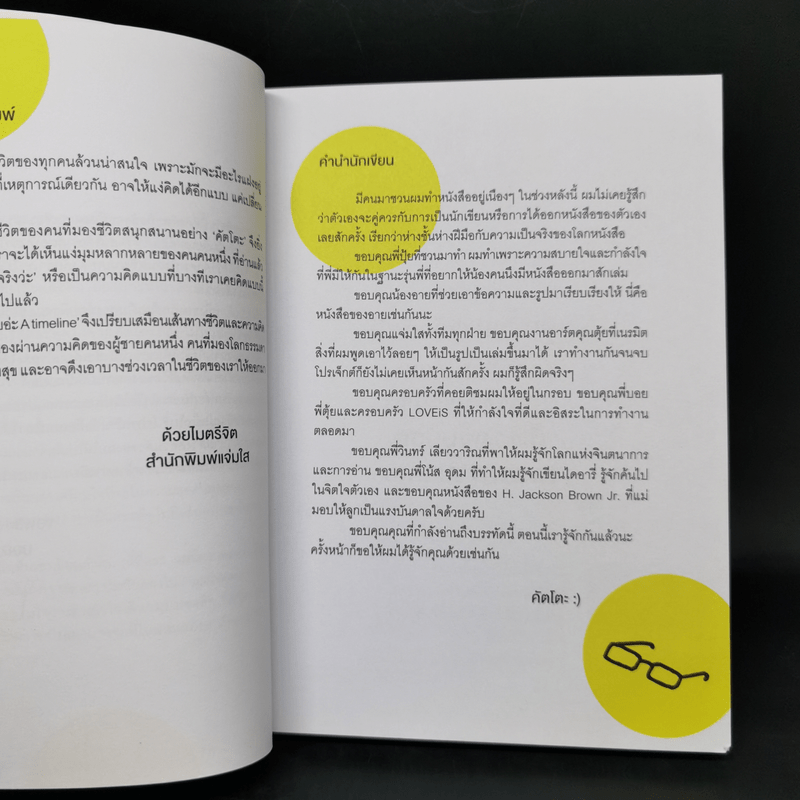 พ์
ชีวิตของทุกคนล้วนน่าสนใจ เพราะมักจะมีอะไรแฝงอยู่
ที่เหตุการณ์เดียวกัน อาจให้แง่คิดได้อีกแบบ แค่เปลี่ยน
ชีวิตของคนที่มองชีวิตสนุกสนานอย่าง 'คัตโตะ' จึงยิ่ง
ราจะได้เห็นแง่มุมหลากหลายของคนคนหนึ่ง ที่อ่านแล้ว
จริงว่ะ' หรือเป็นความคิดแบบที่บางทีเราเคยคิดแบบนี้
ไปแล้ว
ยอ่ะ A timeline' จึงเปรียบเสมือนเส้นทางชีวิตและความคิด
องผ่านความคิดของผู้ชายคนหนึ่ง คนที่มองโลกธรรมดา
สุข และอาจดึงเอาบางช่วงเวลาในชีวิตของเราให้ออกมา
ด้วยไมตรีจิต
สำนักพิมพ์แจ่มใส
คำนำนักเขียน
มีคนมาชวนผมทำหนังสืออยู่เนืองๆ ในช่วงหลังนี้ ผมไม่เคยรู้สึก
ว่าตัวเองจะคู่ควรกับการเป็นนักเขียนหรือการได้ออกหนังสือของตัวเอง
เลยสักครั้ง เรียกว่าห่างชั้นห่างฝีมือกับความเป็นจริงของโลกหนังสือ
ขอบคุณพี่ปุ้ยที่ชวนมาทำ ผมทำเพราะความสบายใจและกำลังใจ
ที่พี่มีให้กันในฐานะรุ่นพี่ที่อยากให้น้องคนนึงมีหนังสือออกมาสักเล่ม
ขอบคุณน้องอายที่ช่วยเอาข้อความและรูปมาเรียบเรียงให้ นี่คือ
หนังสือของอายเช่นกันนะ
ขอบคุณแจ่มใสทั้งทีมทุกฝ่าย ขอบคุณงานอาร์ตคุณตุ้ยที่เนรมิต
สิ่งที่ผมพูดเอาไว้ลอยๆ ให้เป็นรูปเป็นเล่มขึ้นมาได้ เราทำงานกันจนจบ
โปรเจ็กต์ก็ยังไม่เคยเห็นหน้ากันสักครั้ง ผมก็รู้สึกผิดจริงๆ
ขอบคุณครอบครัวที่คอยติชมผมให้อยู่ในกรอบ ขอบคุณพี่บอย
พี่ตุ้ยและครอบครัว LOVEiS ที่ให้กำลังใจที่ดีและอิสระในการทำงาน
ตลอดมา
ขอบคุณพี่วินทร์ เลียววาริณที่พาให้ผมรู้จักโลกแห่งจินตนาการ
และการอ่าน ขอบคุณพี่โน้ส อุดม ที่ทำให้ผมรู้จักเขียนไดอารี่ รู้จักค้นไป
ในจิตใจตัวเอง และขอบคุณหนังสือของ H. Jackson Brown Jr. ที่แม่
มอบให้ลูกเป็นแรงบันดาลใจด้วยครับ
ขอบคุณคุณที่กำลังอ่านถึงบรรทัดนี้ ตอนนี้เรารู้จักกันแล้วนะ
ครั้งหน้าก็ขอให้ผมได้รู้จักคุณด้วยเช่นกัน
คัตโตะ :)